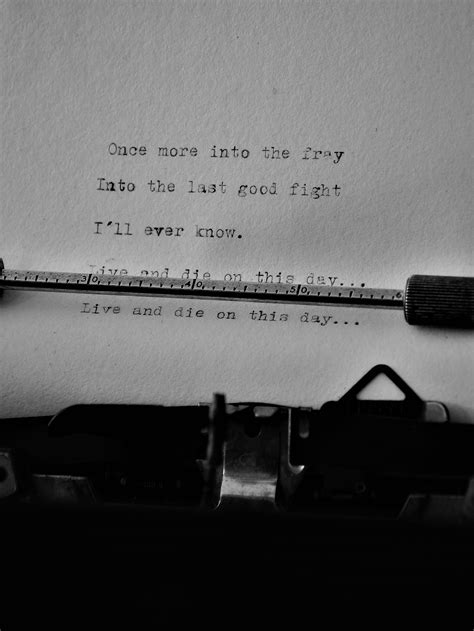 Once more into the fray
Into the last good fight
I'll ever know.
Live and die on this day...
30 40 50 6
Live and die on this day...